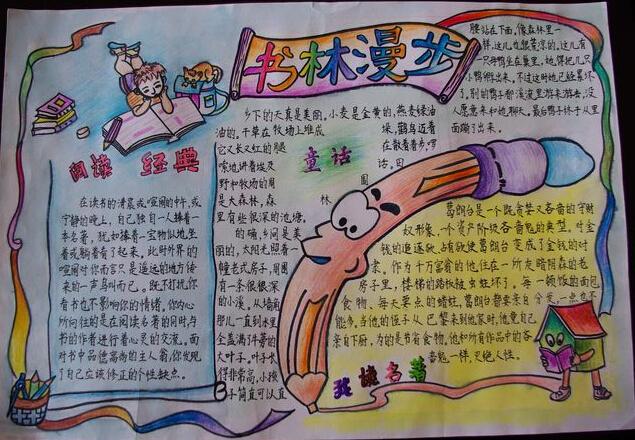 书林漫步
阅读 经典
在读书的清晨或喧闹的中午,或
宁静的晚上,自己独自一人捧着一
本名著,犹如捧着一宝物似地坐
着或躺着看了起来。此时外界的
喧闹对你而言只是遥远的地方传
来的一声鸟叫而已。既不打扰你
看书也不影响你的情绪。你的心
所向往的是在阅读名著的同时,与
书的作者进行着心灵的交流。面
对书中品德高尚的主人翁,你发现
了自己应该修正的个性缺点。
童话
乡下的天真是美丽,小麦是金黄的,燕麦绿油
油的,干草在牧场上堆成垛,鹳鸟迈着
它又长又红的腿在散着步,啰
嗦地讲着埃及话。田
野和牧场的周围
是大森林,森林
里有些很深的池塘。
的确,乡间是美
丽的,太阳光照着一
幢老式房子,周围
有一条很深
的小溪。从墙角
那儿一直到水里
全盖满牛蒡的
大叶子。叶子长
得非常高,小孩
子简直可以直
腰站在下面。像森林里一
样,这儿也很荒凉的。这儿有
一只母鸭坐在巢里,她得把几只
小鸭孵出来。不过这时她已经累坏
了。别的鸭子都溪流里游来游去,没
人愿意来和她聊天。最后鸭子终于从里
面蹦了出来。
葛朗台是一个既贪婪又吝啬的守财
奴形象,一个资产阶级吝啬鬼的典型。对金
钱的追逐欲,占有欲使葛朗台变成了金钱的奴
隶。作为十万富翁的他,住在一所灰暗阴森的老
房子里,楼梯的踏板被虫蛀坏了。每一顿饭的面包
食物、每天要点的蜡烛,葛朗台都要亲自分发,一点也不
能多。当他的侄子从巴黎来到他家时,他竟自己
亲自下厨,为的是节省食物。他和所有作品中的吝
啬鬼一样,灭绝人性。
我读名著